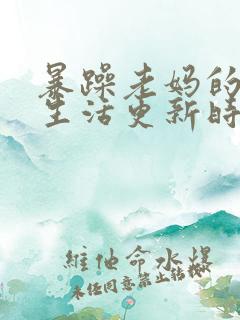 暴躁老妈的
生活更新时
維他命水爆
未任同意禁止转载